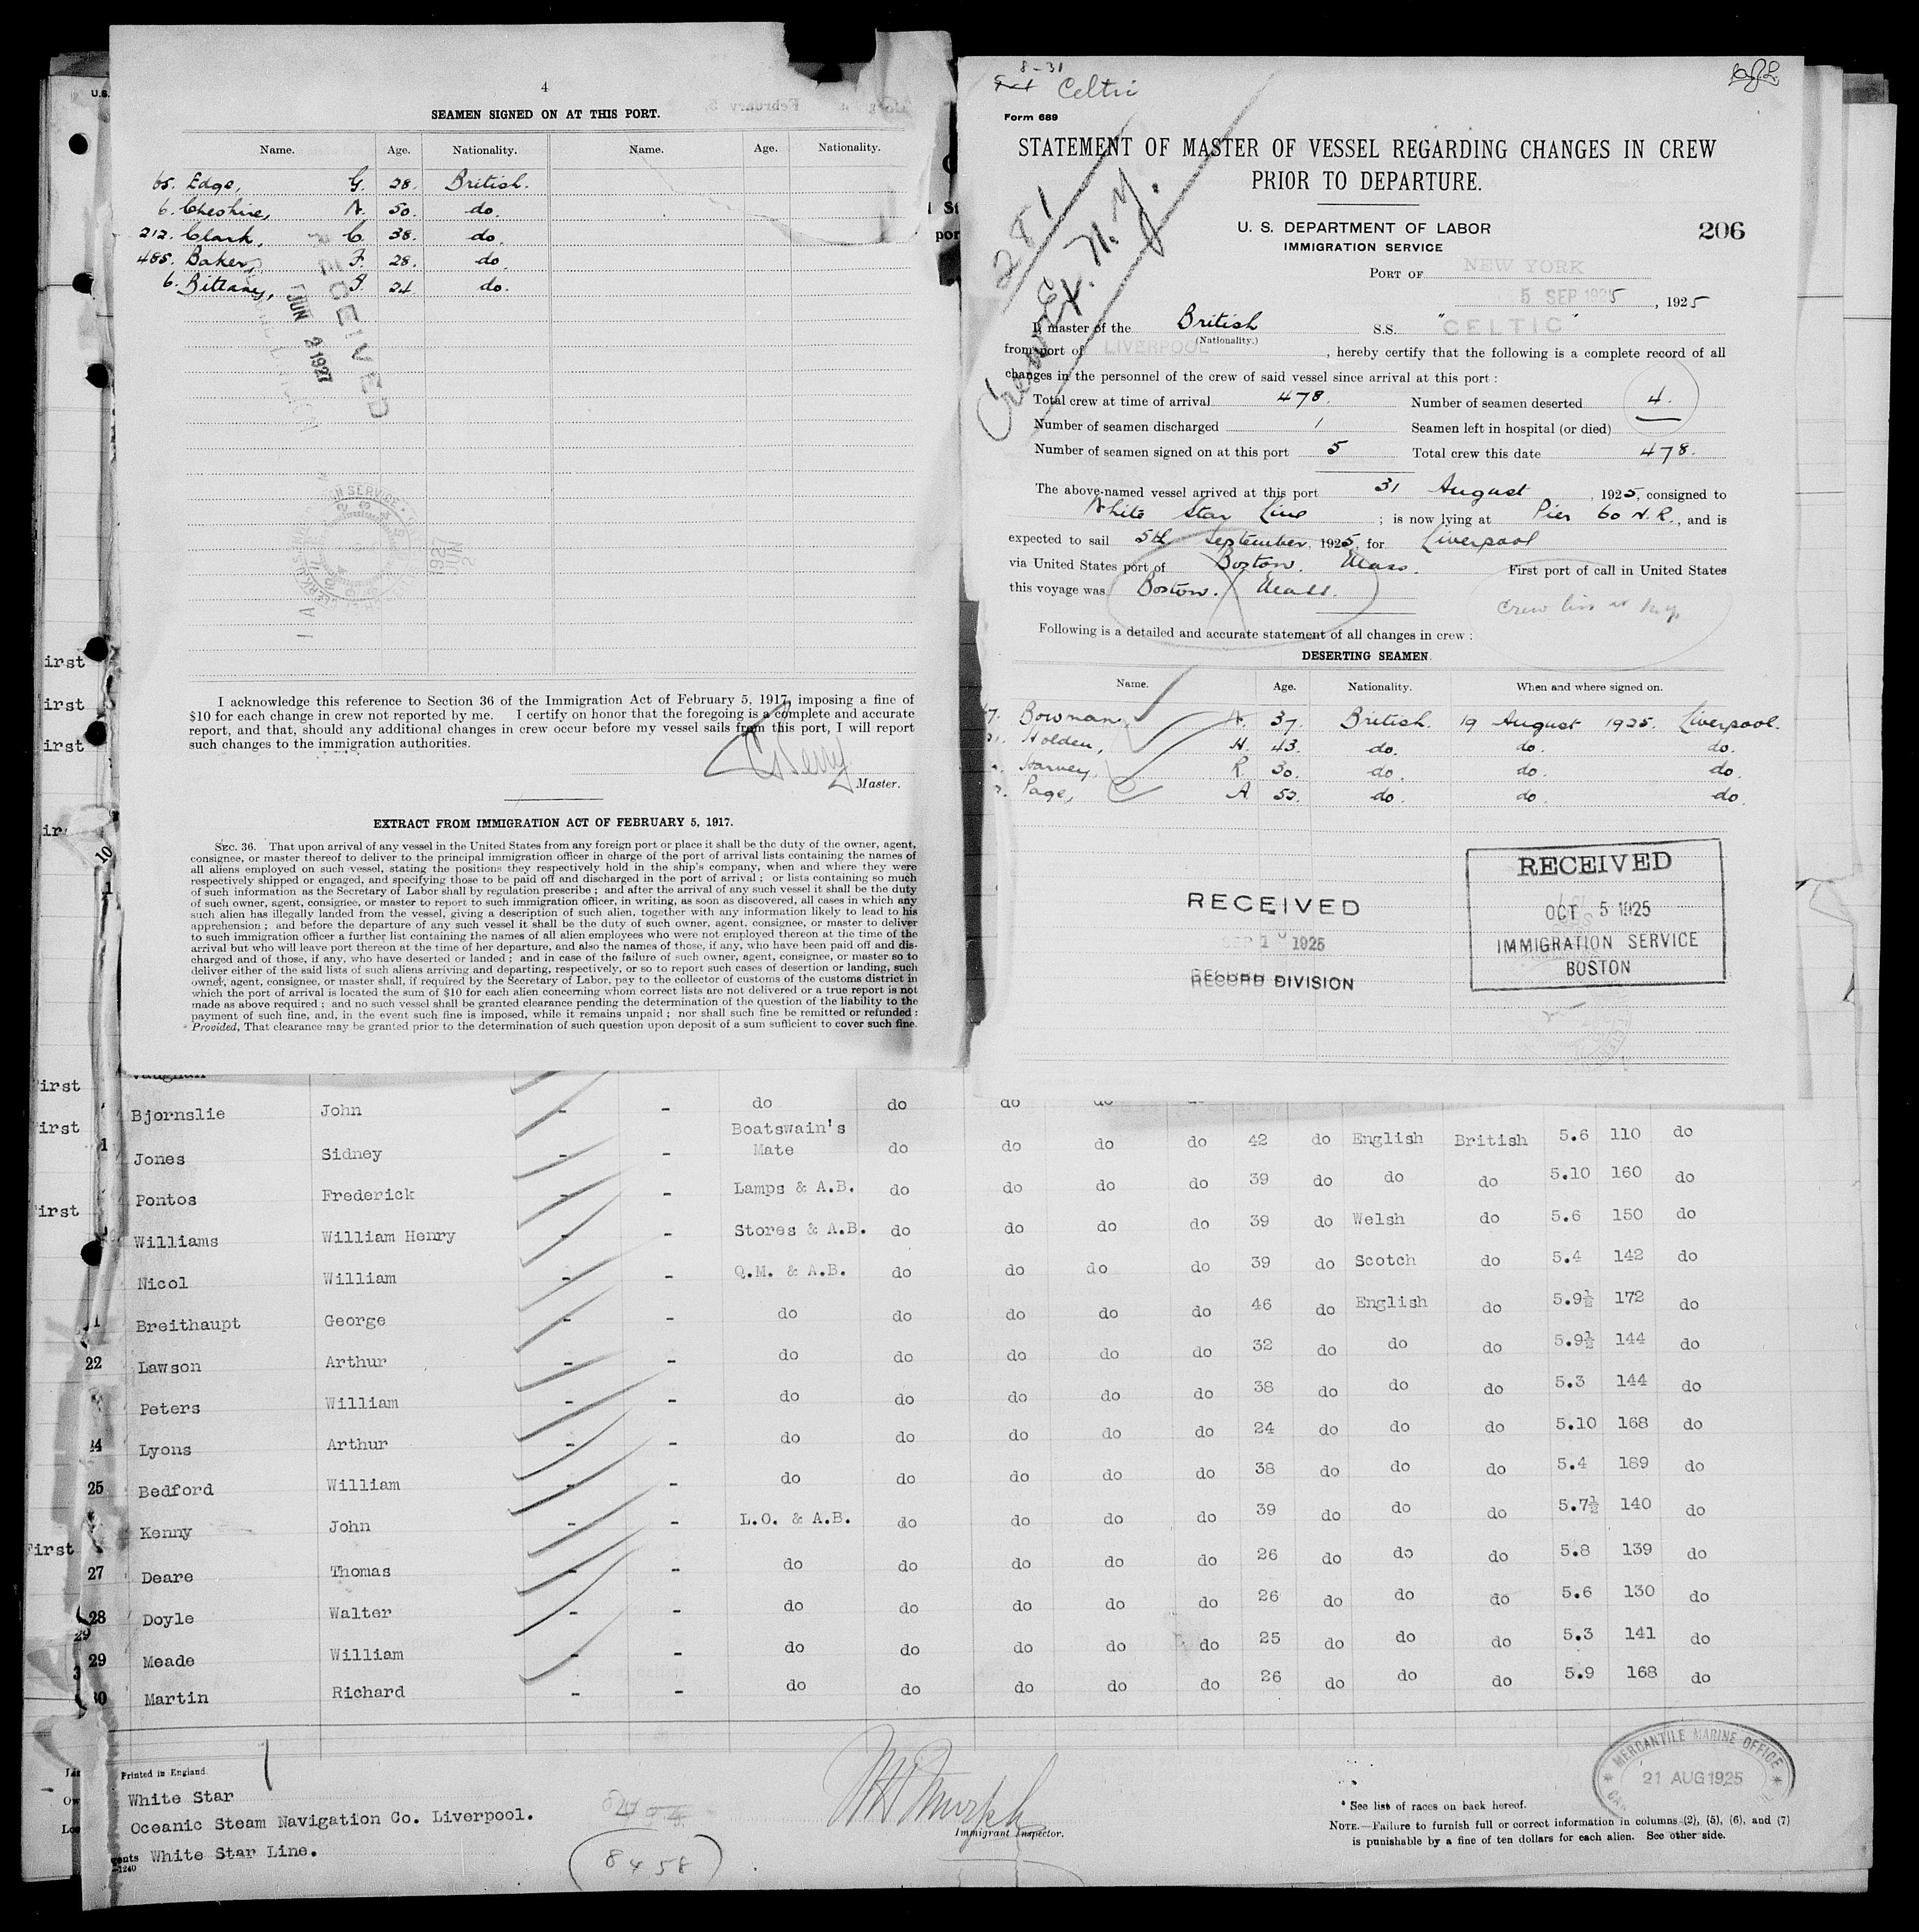 4
SEAMEN SIGNED ON AT THIS PORT.
Name. Age. Nationality. Name. Age. Nationality.
65. Edge, G. 28. British.
6. Cheshire, 50. do.
212. Clark, C. 38. do.
485. Baker, F. 28. do.
6. 24. do.
RECEIVED
JUN 2 1927
I acknowledge this reference to Section 36 of the Immigration Act of February 5, 1917, imposing a fine of
$10 for each change in crew not reported by me. I certify on honor that the foregoing is a complete and accurate
report, and that, should any additional changes in crew occur before my vessel sails from this port, I will report
such changes to the immigration authorities.
Master.
EXTRACT FROM IMMIGRATION ACT OF FEBRUARY 5, 1917.
SEC. 36. That upon arrival of any vessel in the United States from any foreign port or place it shall be the duty of the owner, agent,
consignee, or master thereof to deliver to the principal immigration officer in charge of the port of arrival lists containing the names of
all aliens employed on such vessel, stating the positions they respectively hold in the ship's company, when and where they were
respectively shipped or engaged, and specifying those to be paid off and discharged in the port of arrival; or lists containing so much
of such information as the Secretary of Labor shall by regulation prescribe; and after the arrival of any such vessel it shall be the duty
of such owner, agent, consignee, or master to report to such immigration officer, in writing, as soon as discovered, all cases in which any
such alien has illegally landed from the vessel, giving a description of such alien, together with any information likely to lead to his
apprehension; and before the departure of any such vessel it shall be the duty of such owner, agent, consignee, or master to deliver
to such immigration officer a further list containing the names of all alien employees who were not employed thereon at the time of the
arrival but who will leave port thereon at the time of her departure, and also the names of those, if any, who have been paid off and dis-
charged and of those, if any, who have deserted or landed; and in case of the failure of such owner, agent, consignee, or master so to
deliver either of the said lists of such aliens arriving and departing, respectively, or so to report such cases of desertion or landing, such
owner, agent, consignee, or master shall, if required by the Secretary of Labor, pay to the collector of customs of the customs district in
which the port of arrival is located the sum of $10 for each alien concerning whom correct lists are not delivered or a true report is not
made as above required; and no such vessel shall be granted clearance pending the determination of the question of the liability to the
payment of such fine, and, in the event such fine is imposed, while it remains unpaid; nor shall such fine be remitted or refunded:
Provided, That clearance may be granted prior to the determination of such question upon deposit of a sum sufficient to cover such fine.
8-31
Celtic
Form 689
STATEMENT OF MASTER OF VESSEL REGARDING CHANGES IN CREW
PRIOR TO DEPARTURE.
U. S. DEPARTMENT OF LABOR
IMMIGRATION SERVICE
206
PORT OF NEW YORK
5 SEP 1925, 1925
281
N.Y.
I, master of the British S.S. "CELTIC"
(Nationality.)
from port of LIVERPOOL, hereby certify that the following is a complete record of all
changes in the personnel of the crew of said vessel since arrival at this port:
Total crew at time of arrival 478. Number of seamen deserted 4.
Number of seamen discharged 1 Seamen left in hospital (or died)
Number of seamen signed on at this port 5 Total crew this date 478.
The above-named vessel arrived at this port 31 August, 1925, consigned to
White Star Line; is now lying at Pier 60 N.R., and is
expected to sail 5th September, 1925, for Liverpool
via United States port of Boston. Mass. First port of call in United States
this voyage was Boston. Mass.
Crew list at N.Y.
Following is a detailed and accurate statement of all changes in crew:
DESERTING SEAMEN.
Name. Age. Nationality. When and where signed on.
Bowman, 37. British. 19 August 1925. Liverpool.
Holden, H. 43. do. do. do.
Harvey, R. 30. do. do. do.
Page, A. do. do. do.
RECEIVED
SEP 1 1925
RECORD DIVISION
RECEIVED
OCT 5 1925
IMMIGRATION SERVICE
BOSTON
Bjornslie John - - do do do
Jones Sidney - - Boatswain's Mate do do do do 42 do English British 5.6 110 do
Pontos Frederick - - Lamps & A.B. do do do do 39 do do do 5.10 160 do
Williams William Henry - - Stores & A.B. do do do do 39 do Welsh do 5.6 150 do
Nicol William - - Q.M. & A.B. do do do do 39 do Scotch do 5.4 142 do
Breithaupt George - - do do do do do 46 do English do 5.9½ 172 do
22 Lawson Arthur - - do do do do do 32 do do do 5.9½ 144 do
Peters William - - do do do do do 38 do do do 5.3 144 do
24 Lyons Arthur - - do do do do do 24 do do do 5.10 168 do
25 Bedford William - - do do do do do 38 do do do 5.4 189 do
Kenny John - - L.O. & A.B. do do do do 39 do do do 5.7½ 140 do
27 Deare Thomas - - do do do do do 26 do do do 5.8 139 do
28 Doyle Walter - - do do do do do 26 do do do 5.6 130 do
29 Meade William - - do do do do do 25 do do do 5.3 141 do
30 Martin Richard - - do do do do do 26 do do do 5.9 168 do
Printed in England
White Star
Oceanic Steam Navigation Co. Liverpool.
White Star Line.
8458
Immigrant Inspector.
MERCANTILE MARINE OFFICE
21 AUG 1925
* See list of races on back hereof.
NOTE.—Failure to furnish full or correct information in columns (2), (5), (6), and (7)
is punishable by a fine of ten dollars for each alien. See other side.